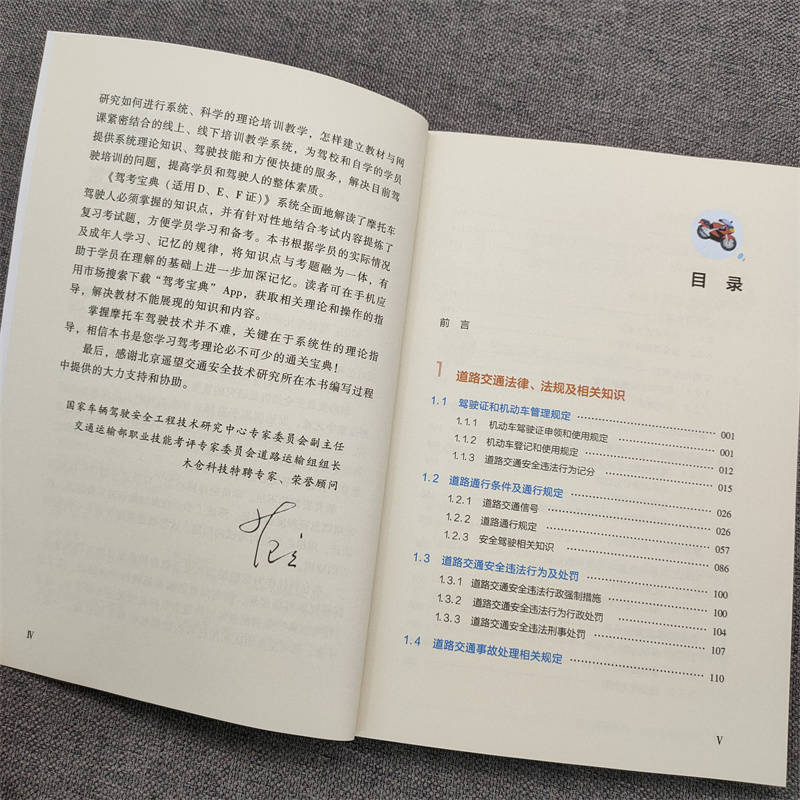 研究如何进行系统、科学的理论培训教学，怎样建立教材与网
课紧密结合的线上、线下培训教学系统，为驾校和自学的学员
提供系统理论知识、驾驶技能和方便快捷的服务，解决目前驾
驶培训的问题，提高学员和驾驶人的整体素质。
《驾考宝典（适用D、E、F证）》系统全面地解读了摩托车
驾驶人必须掌握的知识点，并有针对性地结合考试内容提炼了
复习考试题，方便学员学习和备考。本书根据学员的实际情况
及成年人学习、记忆的规律，将知识点与考题融为一体，有
助于学员在理解的基础上进一步加深记忆。读者可在手机应
用市场搜索下载“驾考宝典”App，获取相关理论和操作的指
导，解决教材不能展现的知识和内容。
掌握摩托车驾驶技术并不难，关键在于系统性的理论指
导，相信本书是您学习驾考理论必不可少的通关宝典！
最后，感谢北京遥望交通安全技术研究所在本书编写过程
中提供的大力支持和协助。
国家车辆驾驶安全工程技术研究中心专家委员会副主任
交通运输部职业技能考评专家委员会道路运输组组长
木仓科技特聘专家、荣誉顾问
IV
目 录
前 言
1 道路交通法律、法规及相关知识
1.1 驾驶证和机动车管理规定 001
1.1.1 机动车驾驶证申领和使用规定 001
1.1.2 机动车登记和使用规定 012
1.1.3 道路交通安全违法行为记分 015
1.2 道路通行条件及通行规定 026
1.2.1 道路交通信号 026
1.2.2 道路通行规定 057
1.2.3 安全驾驶相关知识 086
1.3 道路交通安全违法行为及处罚 100
1.3.1 道路交通安全违法行政强制措施 100
1.3.2 道路交通安全违法行为行政处罚 104
1.3.3 道路交通安全违法刑事处罚 107
1.4 道路交通事故处理相关规定 110
V